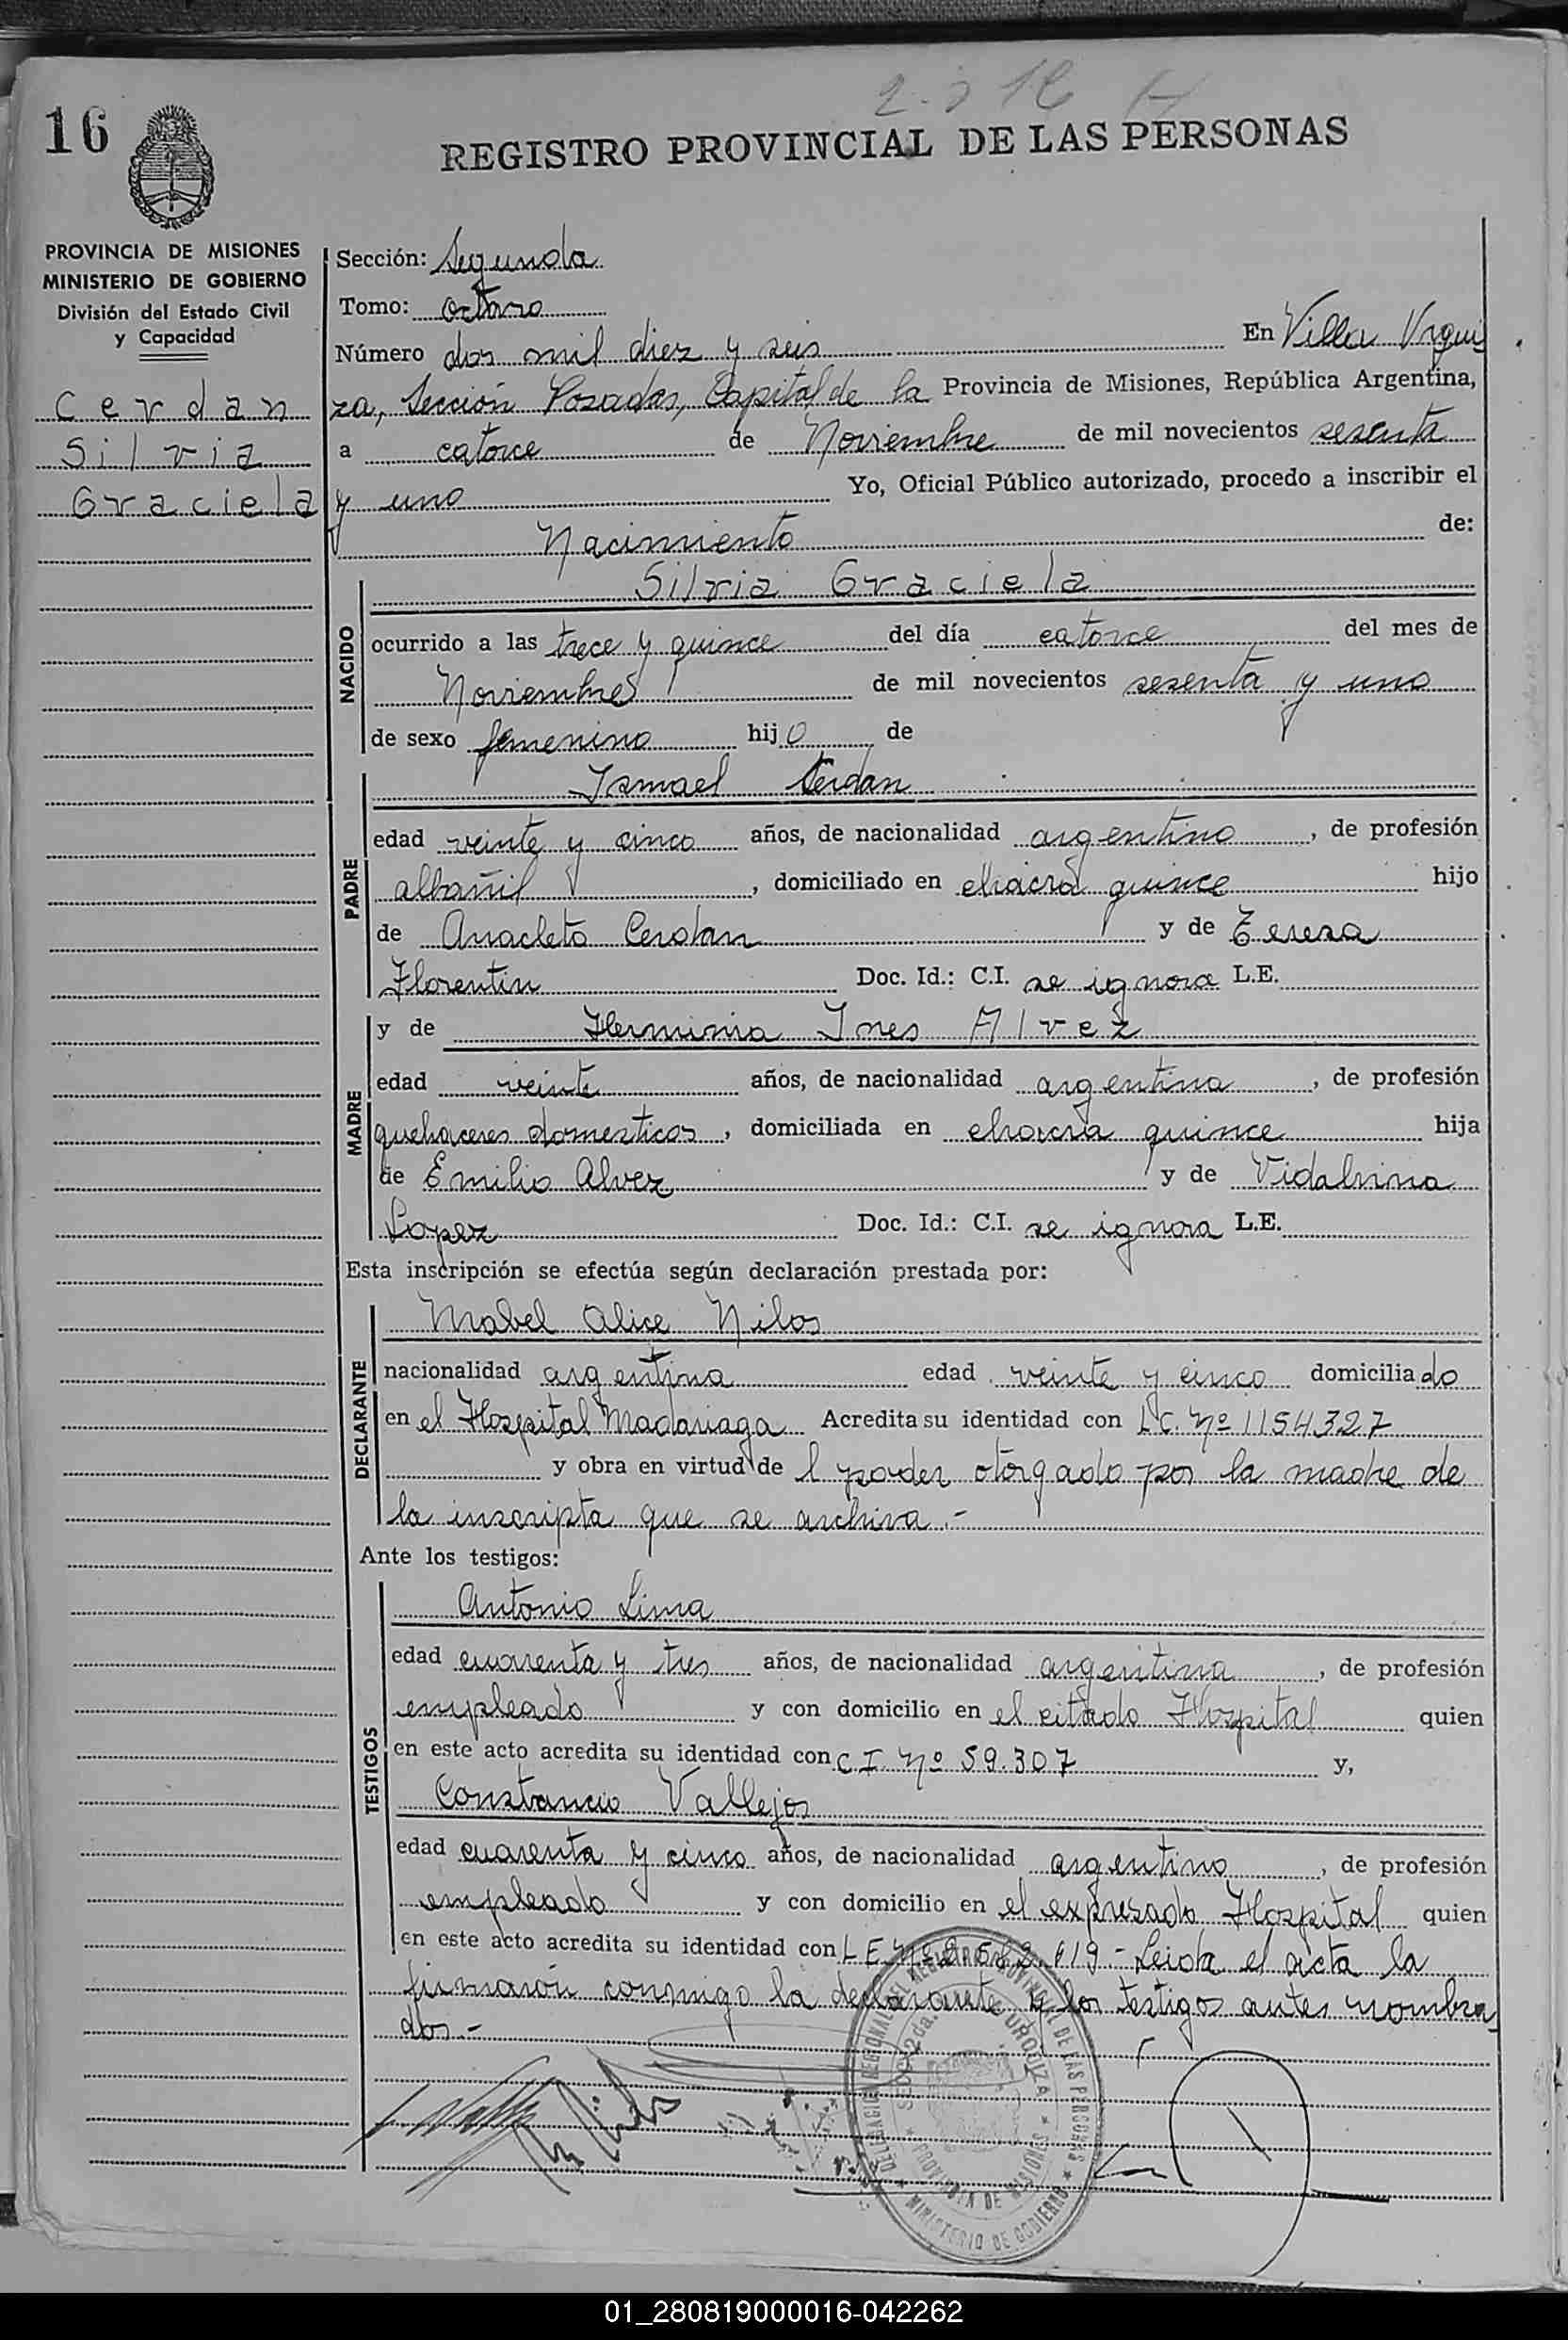 16
REGISTRO PROVINCIAL DE LAS PERSONAS
PROVINCIA DE MISIONES
MINISTERIO DE GOBIERNO
División del Estado Civil
y Capacidad
Cerdan
Silvia
Graciela
Sección: Segunda
Tomo: octavo
Número dos mil diez y seis En Villa Urqui
za, Sección Posadas, Capital de la Provincia de Misiones, República Argentina,
a catorce de Noviembre de mil novecientos sesenta
y uno Yo, Oficial Público autorizado, procedo a inscribir el
Nacimiento de:
NACIDO
Silvia Graciela
ocurrido a las trece y quince del día catorce del mes de
Noviembre de mil novecientos sesenta y uno
de sexo femenino hijo de
PADRE
Ismael Cerdan
edad veinte y cinco años, de nacionalidad argentino, de profesión
albañil, domiciliado en chacra quince hijo
de Anacleto Cerdan y de Teresa
Florentin Doc. Id.: C.I. se ignora L.E.
MADRE
y de Herminia Ines Alvez
edad veinte años, de nacionalidad argentina, de profesión
quehaceres domesticos, domiciliada en chacra quince hija
de Emilio Alvez y de Vidalvina
Lopez Doc. Id.: C.I. se ignora L.E.
Esta inscripción se efectúa según declaración prestada por:
DECLARANTE
Mabel Alice Nilos
nacionalidad argentina edad veinte y cinco domiciliado
en el Hospital Madariaga Acredita su identidad con L.C. Nº 1154327
y obra en virtud de l poder otorgado por la madre de
la inscripta que se archiva.-
Ante los testigos:
TESTIGOS
Antonio Lima
edad cuarenta y tres años, de nacionalidad argentina, de profesión
empleado y con domicilio en el citado Hospital quien
en este acto acredita su identidad con C I. Nº 59.307 y,
Constancio Vallejos
edad cuarenta y cinco años, de nacionalidad argentino, de profesión
empleado y con domicilio en el expresado Hospital quien
en este acto acredita su identidad con L E Nº 619 - Leida el acta la
firmaron conmigo la declarante y los testigos antes nombra
dos.-
DELEGACION REGIONAL DEL REGISTRO PROVINCIAL DE LAS PERSONAS
SECC. 2da. URQUIZA
PROVINCIA DE MISIONES
MINISTERIO DE GOBIERNO
01_280819000016-042262